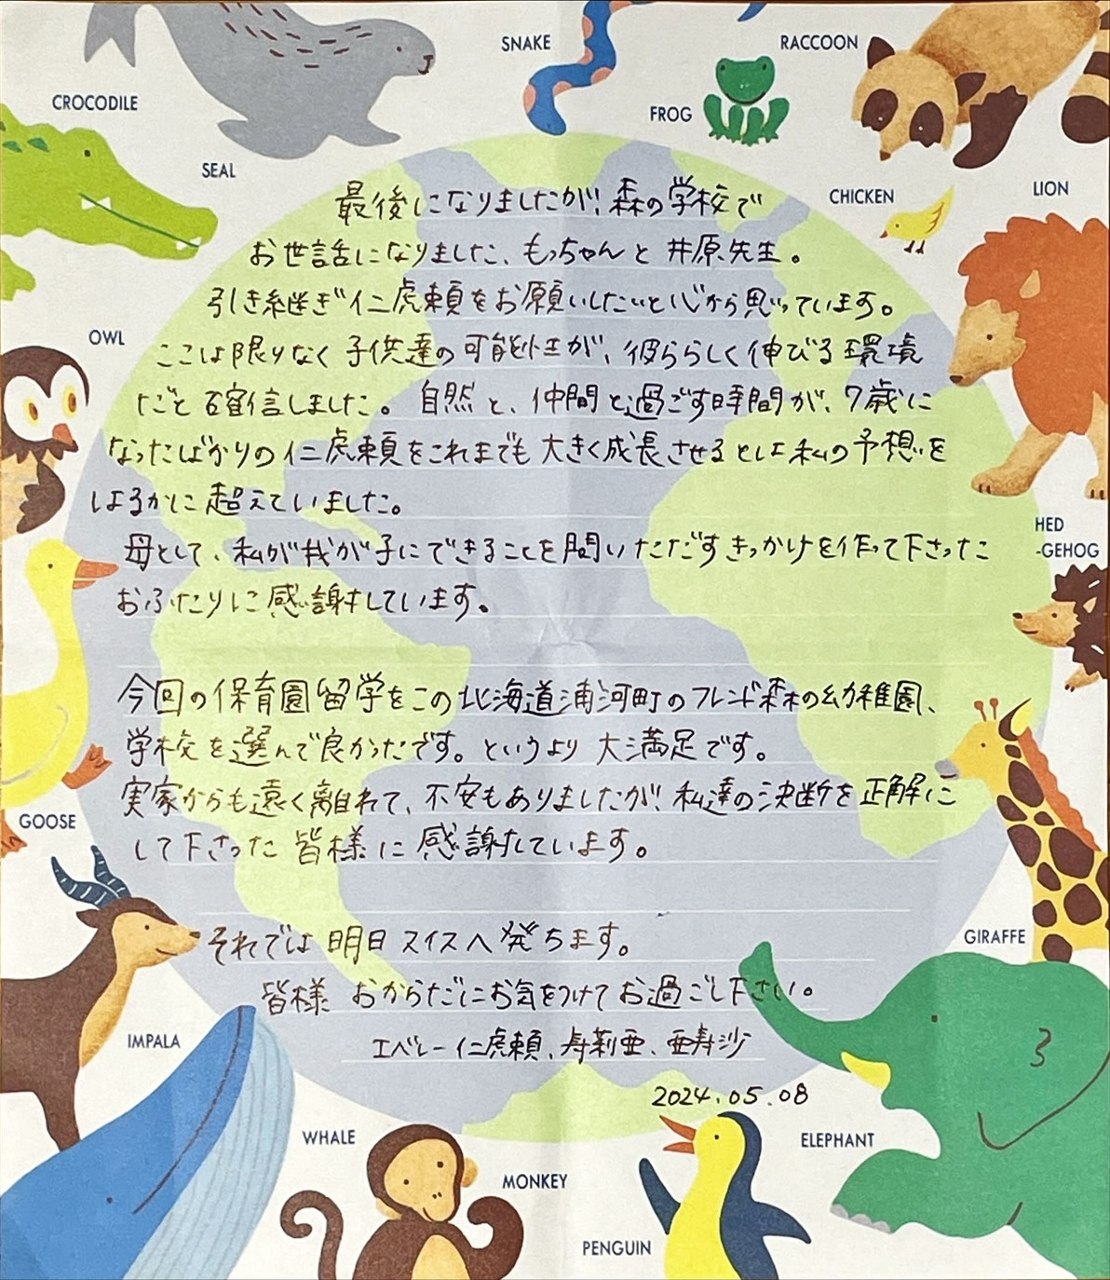 SNAKE
RACCOON
CROCODILE
FROG
SEAL
CHICKEN
LION
最後になりましたが、森の学校で
お世話になりました、もっちゃんと井原先生。
引き継ぎ仁虎頼をお願いしたいと心から思っています。
OWL
ここは限りなく子供達の可能性が、彼ららしく伸びる環境
だと確信しました。自然と、仲間と過ごす時間が、7歳に
なったばかりの仁虎頼をこれまでも大きく成長させるとは私の予想を
はるかに超えていました。
HED
-GEHOG
母として、私が我が子にできることを問いただすきっかけを作って下さった
おふたりに感謝しています。
今回の保育園留学をこの北海道浦河町のフレンド森の幼稚園、
学校を選んで良かったです。というより大満足です。
実家からも遠く離れて、不安もありましたが、私達の決断を正解に
GOOSE
して下さった皆様に感謝しています。
それでは明日スイスへ発ちます。
GIRAFFE
皆様 おからだにお気をつけてお過ごし下さい。
IMPALA
エベレー仁虎頼、寿莉亜、亜寿沙
2024.05.08
WHALE
ELEPHANT
MONKEY
PENGUIN